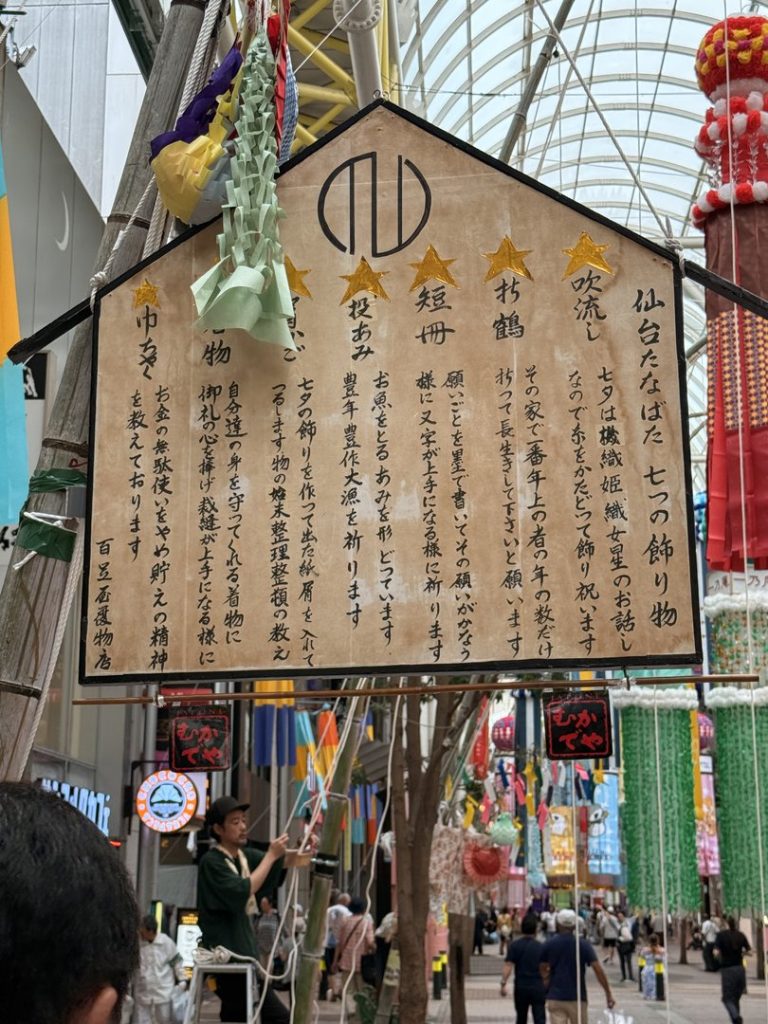 仙台たなばた 七つの飾り物
吹流し
七夕は機織姫、織女星のお話し
なので糸をかたどって飾り祝います
折鶴
その家で一番年上の者の年の数だけ
折って長生きして下さいと願います
短冊
願いごとを墨で書いてその願いがかなう
様に又字が上手になる様に祈ります
投あみ
お魚をとるあみを形どっています
豊年豊作大漁を祈ります
ご
七夕の飾りを作って出た紙屑を入れて
つるします物の始末整理整頓の教え
物
自分達の身を守ってくれる着物に
御礼の心を捧げ裁縫が上手になる様に
巾ちゃく
お金の無駄使いをやめ貯えの精神
を教えております
百足屋履物店
むかでや
むかでや